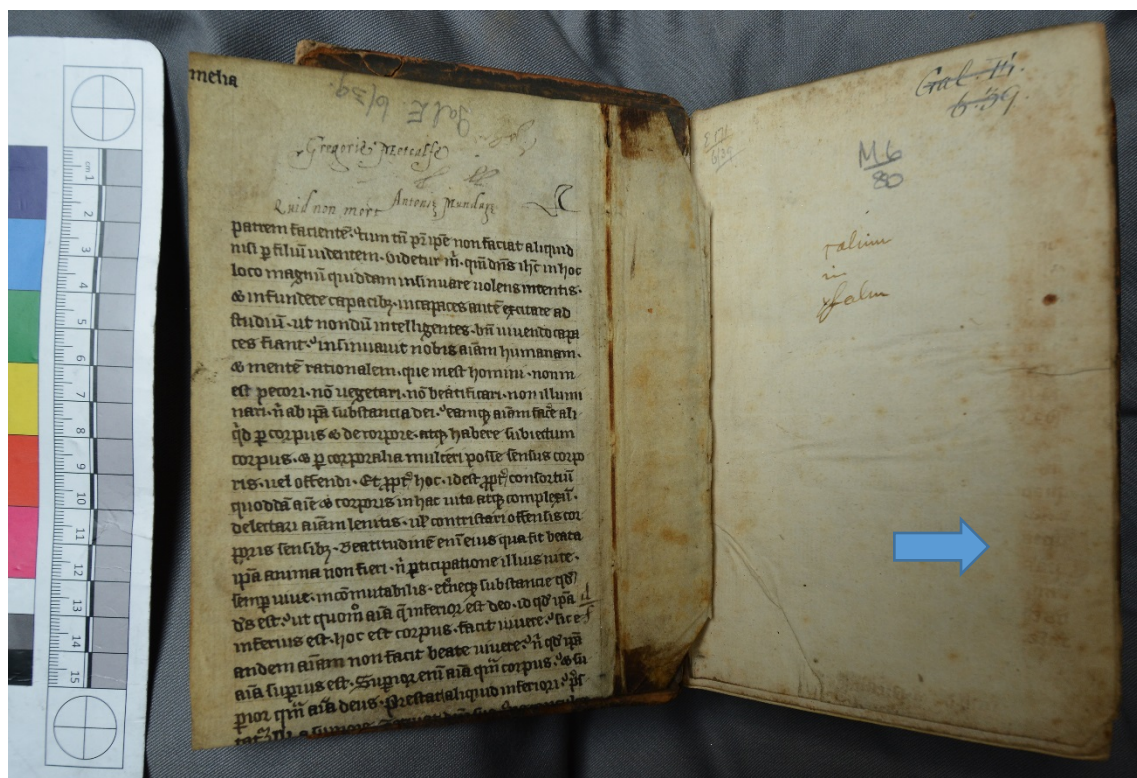 melia
Gal E. 6/39.
Gregorie Metcalfe
Antoniꝰ Mundaꝰ
Quid non mort
patrem faciente. tum tn̄ pr̄ ip̄e non faciat aliquid
nisi ꝑ filiū uidentem. videtur m̄. qm̄ dn̄s ih̄c in hoc
loco magnū quiddam insinuare uolens intentis.
& infundere capacibꝫ. incapaces autē excitare ad
studiū. ut nondū intelligentes. bn̄ uiuendo capa
ces fiant. insinuauit nobis aīam humanam.
& mentē rationalem. que inest homini. non in
est pecori. nō uegetari. nō beatificari. non illumi
nari. n̄ ab ip̄a substancia dei. eamqꝫ aīam facē ali
qd̄ ꝑ corpus & de corpore. atqꝫ habere subiectum
corpus. & ꝑ corporalia mulceri posse sensus corpo
ris. uel offendi. Et ꝓpt̄ hoc. idest ꝓpt̄ consortiū
quoddā aīe & corporis in hac uita atqꝫ complexū.
delectari aīam lenitis. ul̄ contristari offensis cor
poris sensibꝫ. Beatitudinē enī eius qua fit beata
ip̄a anima non fieri. n̄ ꝑticipatione illius uite.
semꝑ uiue. incōmutabilis. etneqꝫ substancie qd̄
d̄s est. ut quom̄o aīa q̄ inferior est deo. id qd̄ ip̄a
inferius est. hoc est corpus. facit uiuere. sic e
andem aīam non facit beate uiuere. n̄ qd̄ ip̄a
aīa supius est. Superior enī aīa qm̄ corpus. & su
perior qm̄ aīa deus. Prestat aliquid inferiori.
E 171
6/39
Gal. H.
6.39.
M 6
80
in
psalm
cm 1
2
3
4
5
6
7
8
9
10
11
12
13
14
15